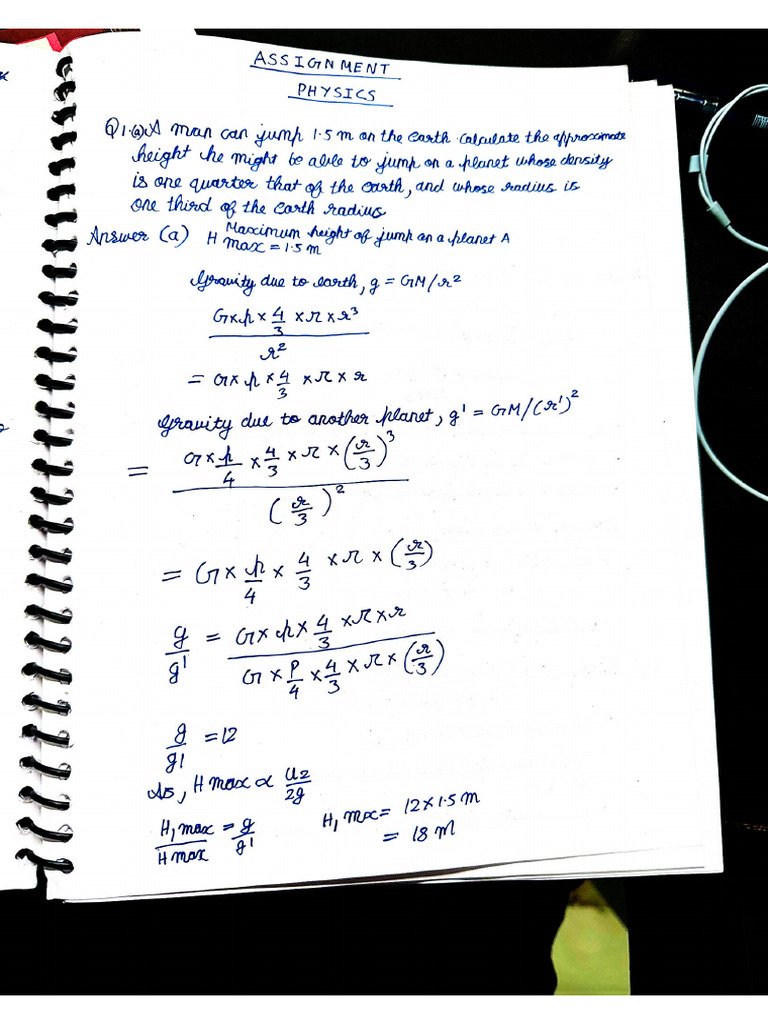 ASSIGNMENT
PHYSICS
Q1.(a) A man can jump 1.5 m on the earth. calculate the approximate
height he might be able to jump on a planet whose density
is one quarter that of the earth, and whose radius is
one third of the earth radius
Answer (a) H max = 1.5 m Maximum height of jump on a planet A
Gravity due to earth, g = GM/r²
G×p×4/3×π×r³
r²
= G×p×4/3×π×r
Gravity due to another planet, g' = GM/(r')²
= G×p/4×4/3×π×(r/3)³
(r/3)²
= G×p/4×4/3×π×(r/3)
g/g' = G×p×4/3×π×r
G×P/4×4/3×π×(r/3)
g/g1 = 12
As, H max ∝ U2/2g
H, max/H max = g/g' H, max = 12×1.5 m
= 18 m